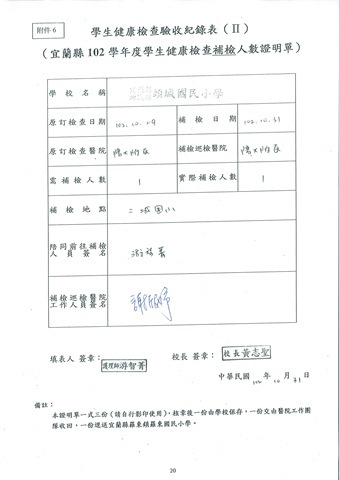 附件6
學生健康檢查驗收紀錄表（Ⅱ）
（宜蘭縣 102 學年度學生健康檢查補檢人數證明單）
學校名稱 頭城國民小學
原訂檢查日期 102.10.09 補檢日期 102.10.31
原訂檢查醫院 陽大附醫 補檢巡檢醫院 陽大附醫
需補檢人數 1 實際補檢人數 1
補檢地點 二城國小
陪同前往補檢
人員簽名
補檢巡檢醫院
工作人員簽名
填表人 簽章： 護理師游智菁 校長 簽章： 校長黃志聖
中華民國 102 年 10 月 31 日
備註：
本證明單一式三份（請自行影印使用），核章後一份由學校保存，一份交由醫院工作團
隊收回，一份遞送宜蘭縣羅東鎮羅東國民小學。
20